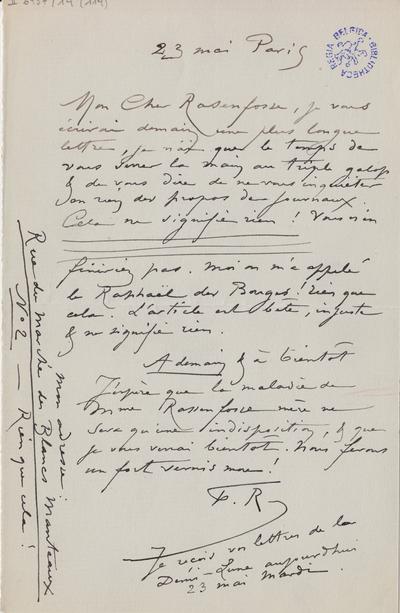 II 6957/14 (114)
23 mai Paris
BIBLIOTHECA REGIA BELGICA
Mon Cher Rassenfosse, je vous
écrirai demain une plus longue
lettre, je n'ai que le temps de
vous serrer la main au triple galop
& de vous dire de ne vous inquiéter
en rien des propos de journaux
Cela ne signifie rien ! Vous n'en
finiriez pas. Moi on m'a appelé
le Raphaël des Bouges ! rien que
cela. L'article est bête, injuste
& ne signifie rien.
A demain & à bientôt
J'espère que la maladie de
Mme Rassenfosse mère ne
sera qu'une indisposition, & que
je vous verrai bientôt. Nous ferons
un fort vernis mou !
F. R
Je reçois vos lettres de la
Demi-Lune aujourdhui
23 mai Mardi.
mon adresse :
Rue du Marché des Blancs Manteaux
No 2 — Rien que cela !